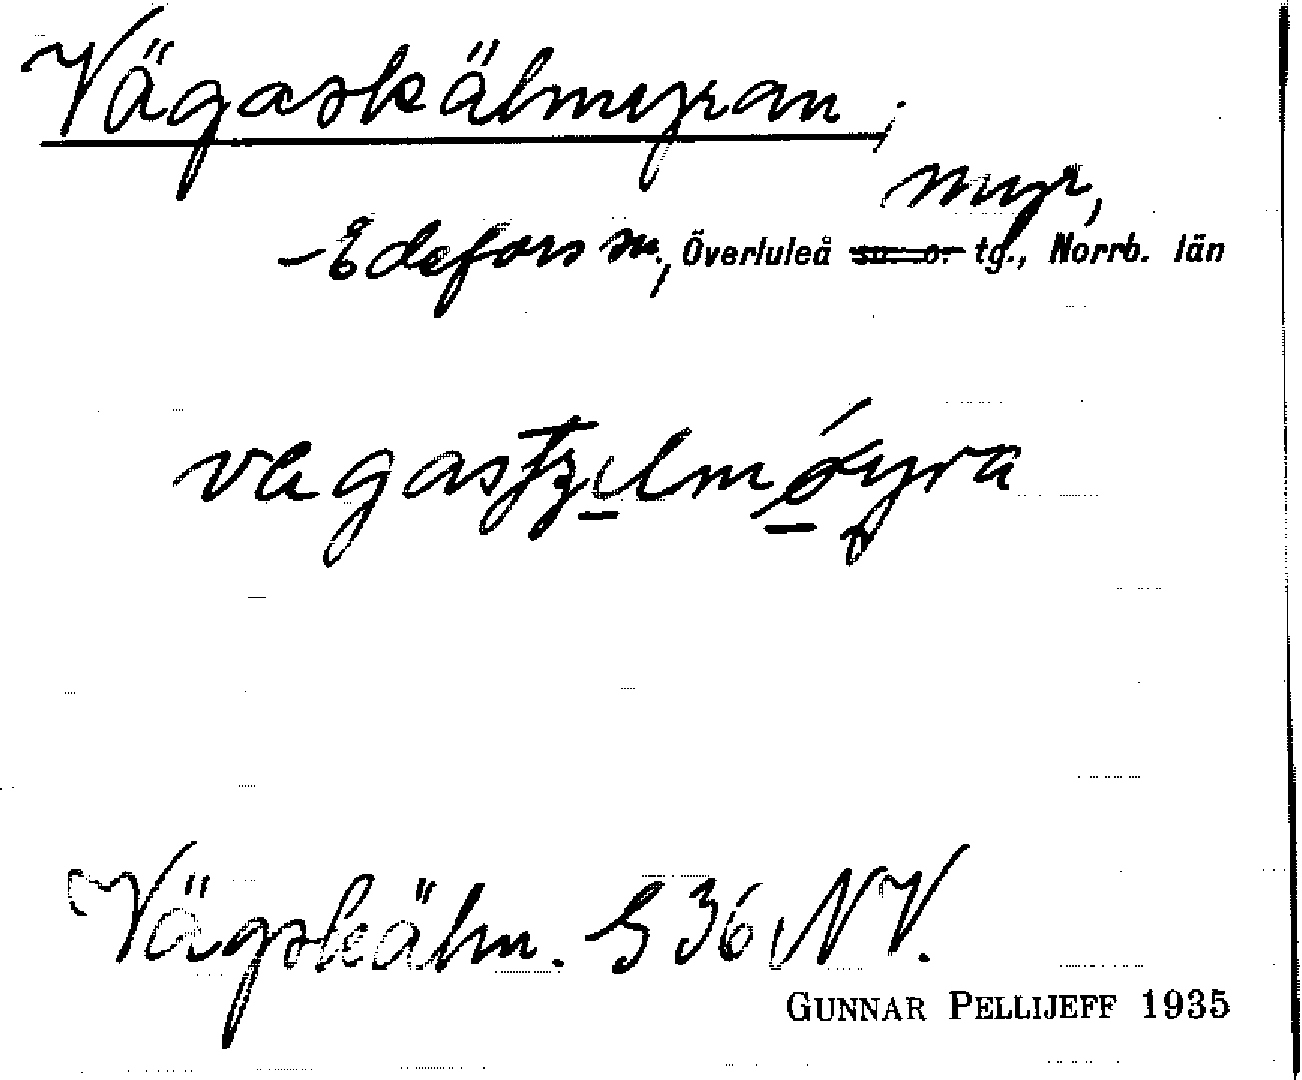 Vägaskälmyran,
myr,
Edefors sn., Överluleå tg., Norrb. län
Vägskälm. G 36, NV.
GUNNAR PELLIJEFF 1935